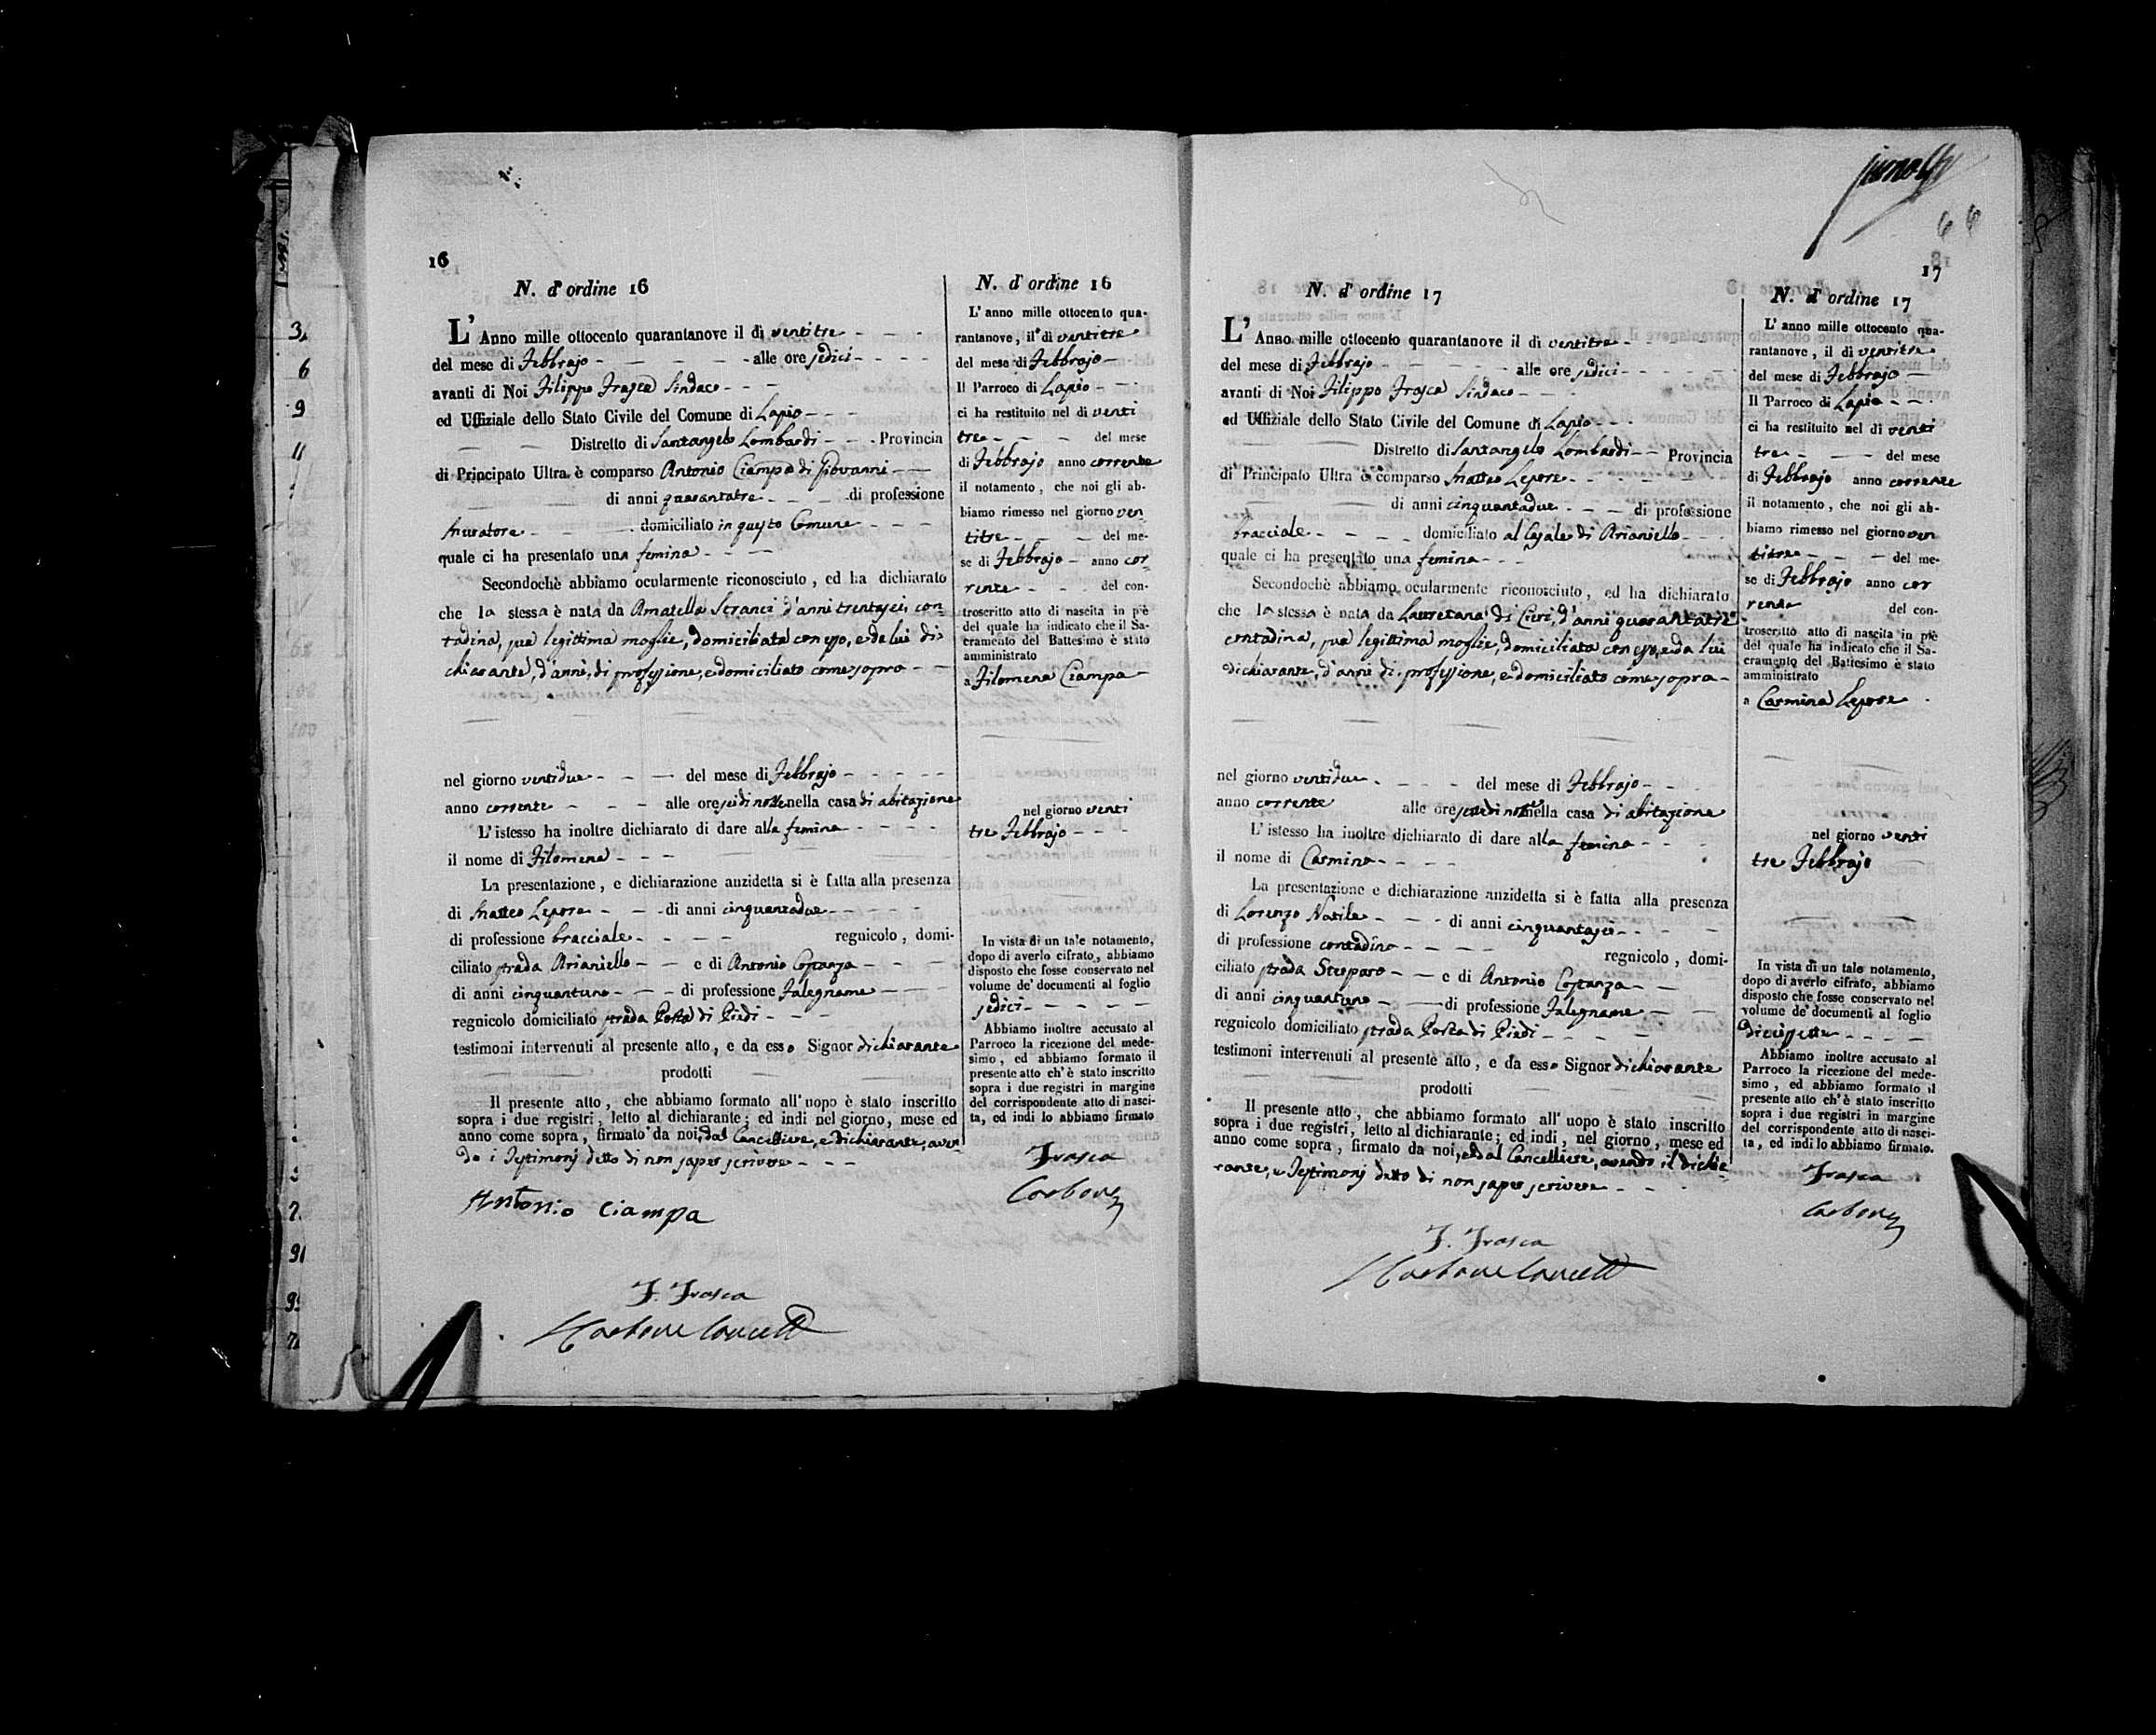 16
N. d' ordine 16
L' Anno mille ottocento quarantanove il dì ventitre
del mese di Febbrajo alle ore sedici
avanti di Noi Filippo Frasca Sindaco
ed Uffiziale dello Stato Civile del Comune di Lapio
Distretto di Santangelo Lombardi Provincia
di Principato Ultra è comparso Antonio Ciampa di Giovanni
di anni quarantatre di professione
Muratore domiciliato in questo Comune
quale ci ha presentato una femina
Secondochè abbiamo ocularmente riconosciuto, ed ha dichiarato
che la stessa è nata da Amatella Scranci d'anni trentasei, con-
tadina, sua legittima moglie, domiciliata con esso, e da lui di-
chiarante, d'anni, di professione, e domiciliato come sopra
nel giorno ventidue del mese di Febbrajo
anno corrente alle ore sei di notte nella casa di abitazione
L' istesso ha inoltre dichiarato di dare alla femina
il nome di Filomena
La presentazione, e dichiarazione anzidetta si è fatta alla presenza
di Matteo Lepore di anni cinquantadue
di professione bracciale regnicolo, domi-
ciliato strada Arianiello e di Antonio Costanza
di anni cinquantuno di professione Falegname
regnicolo domiciliato strada Porta di Piedi
testimoni intervenuti al presente atto, e da esso Signor dichiarante
prodotti
Il presente atto, che abbiamo formato all' uopo è stato inscritto
sopra i due registri, letto al dichiarante; ed indi nel giorno, mese ed
anno come sopra, firmato da noi, dal Cancelliere, e dichiarante, aven-
do i Testimonj detto di non saper scrivere
Antonio Ciampa
F. Frasca
Carbone Cancell
N. d' ordine 16
L' anno mille ottocento qua-
rantanove, il dì ventitre
del mese di Febbrajo
Il Parroco di Lapio
ci ha restituito nel dì venti
tre del mese
di Febbrajo anno corrente
il notamento, che noi gli ab-
biamo rimesso nel giorno ven
titre del me-
se di Febbrajo anno cor-
rente del con-
troscritto atto di nascita in piè
del quale ha indicato che il Sa-
cramento del Battesimo è stato
amministrato
a Filomena Ciampa
nel giorno venti
tre Febbrajo
In vista di un tale notamento,
dopo di averlo cifrato, abbiamo
disposto che fosse conservato nel
volume de' documenti al foglio
sedici
Abbiamo inoltre accusato al
Parroco la ricezione del mede-
simo, ed abbiamo formato il
presente atto ch' è stato inscritto
sopra i due registri in margine
del corrispondente atto di nasci-
ta, ed indi lo abbiamo firmato
Frasca
Carbone
17
N. d' ordine 17
L' Anno mille ottocento quarantanove il dì ventitre
del mese di Febbrajo alle ore sedici
avanti di Noi Filippo Frasca Sindaco
ed Uffiziale dello Stato Civile del Comune di Lapio
Distretto di Santangelo Lombardi Provincia
di Principato Ultra è comparso Matteo Lepore
di anni cinquantadue di professione
bracciale domiciliato al Casale di Arianiello
quale ci ha presentato una femina
Secondochè abbiamo ocularmente riconosciuto, ed ha dichiarato
che la stessa è nata da Lauretana di Cicri, d'anni quarantatre
contadina, sua legittima moglie, domiciliata con esso, e da lui
dichiarante, d'anni di professione, e domiciliato come sopra
nel giorno ventidue del mese di Febbrajo
anno corrente alle ore sette di notte nella casa di abitazione
L' istesso ha inoltre dichiarato di dare alla femina
il nome di Carmina
La presentazione e dichiarazione anzidetta si è fatta alla presenza
di Lorenzo Natile di anni cinquantasei
di professione contadino regnicolo, domi-
ciliato strada Streparo e di Antonio Costanza
di anni cinquantuno di professione Falegname
regnicolo domiciliato strada Porta di Piedi
testimoni intervenuti al presente atto, e da esso Signor dichiarante
prodotti
Il presente atto, che abbiamo formato all' uopo è stato inscritto
sopra i due registri, letto al dichiarante; ed indi, nel giorno, mese ed
anno come sopra, firmato da noi, e dal Cancelliere, avendo il dichia-
rante, e Testimonj detto di non saper scrivere
F. Frasca
Carbone Cancell
N. d' ordine 17
L' anno mille ottocento qua-
rantanove, il dì ventitre
del mese di Febbrajo
Il Parroco di Lapio
ci ha restituito nel dì venti
tre del mese
di Febbrajo anno corrente
il notamento, che noi gli ab-
biamo rimesso nel giorno ven
titre del me-
se di Febbrajo anno cor
rente del con-
troscritto atto di nascita in piè
del quale ha indicato che il Sa-
cramento del Battesimo è stato
amministrato
a Carmina Lepore
nel giorno venti
tre Febbrajo
In vista di un tale notamento,
dopo di averlo cifrato, abbiamo
disposto che fosse conservato nel
volume de' documenti al foglio
diciassette
Abbiamo inoltre accusato al
Parroco la ricezione del mede-
simo, ed abbiamo formato il
presente atto ch' è stato inscritto
sopra i due registri in margine
del corrispondente atto di nasci-
ta, ed indi lo abbiamo firmato.
Frasca
Carbone